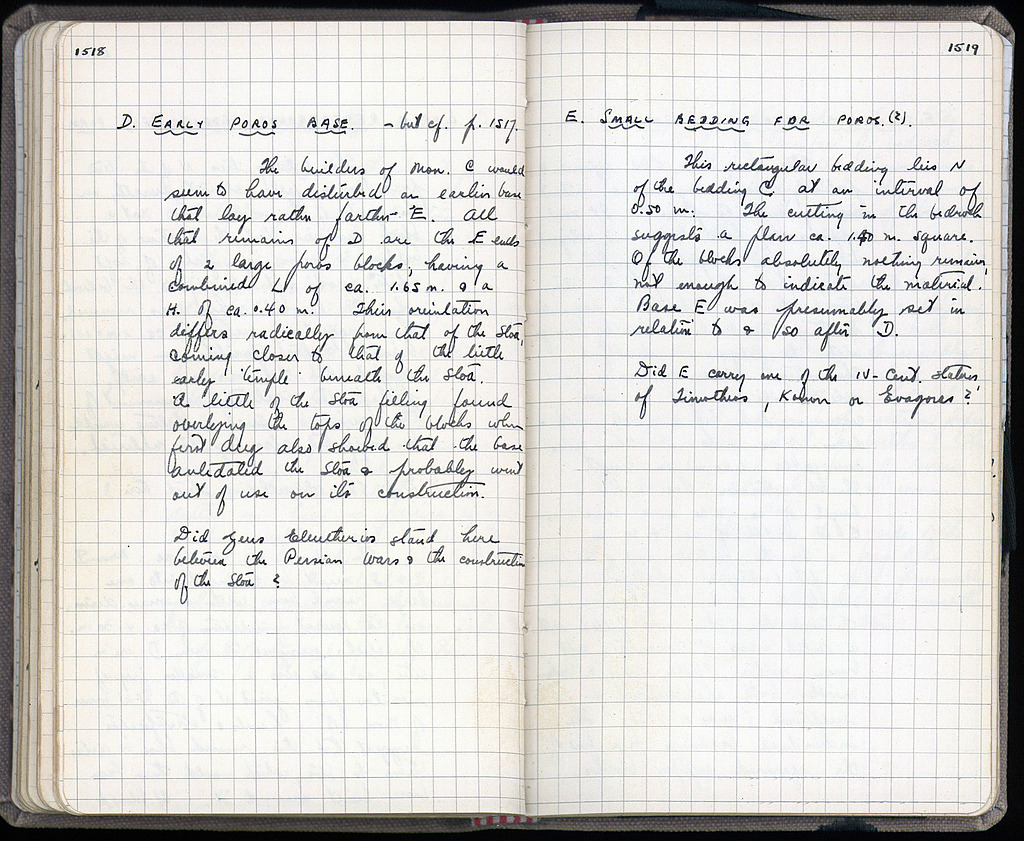 1518
D. EARLY POROS BASE. - but cf. p. 1517.
The builders of Mon. C would
seem to have disturbed an earlier base
that lay rather farther E. All
that remains of D are the E ends
of 2 large poros blocks, having a
combined L of ca. 1.65 m. & a
H. of ca. 0.40 m. This orientation
differs radically from that of the Stoa,
coming closer to that of the little
early 'temple' beneath the Stoa.
A little of the Stoa filling found
overlying the tops of the blocks when
first dug also showed that the base
antedated the Stoa & probably went
out of use on its construction.
Did Zeus Eleutherios stand here
between the Persian Wars & the construction
of the Stoa?
1519
E. SMALL BEDDING FOR POROS. (?).
This rectangular bedding lies N
of the bedding C, at an interval of
0.50 m. The cutting in the bedrock
suggests a plan ca. m. square.
Of the blocks absolutely nothing remains,
not enough to indicate the material.
Base E was presumably set in
relation to & so after D.
Did E carry one of the IV-Cent. statues,
of Timotheos, Konon or Evagoras?